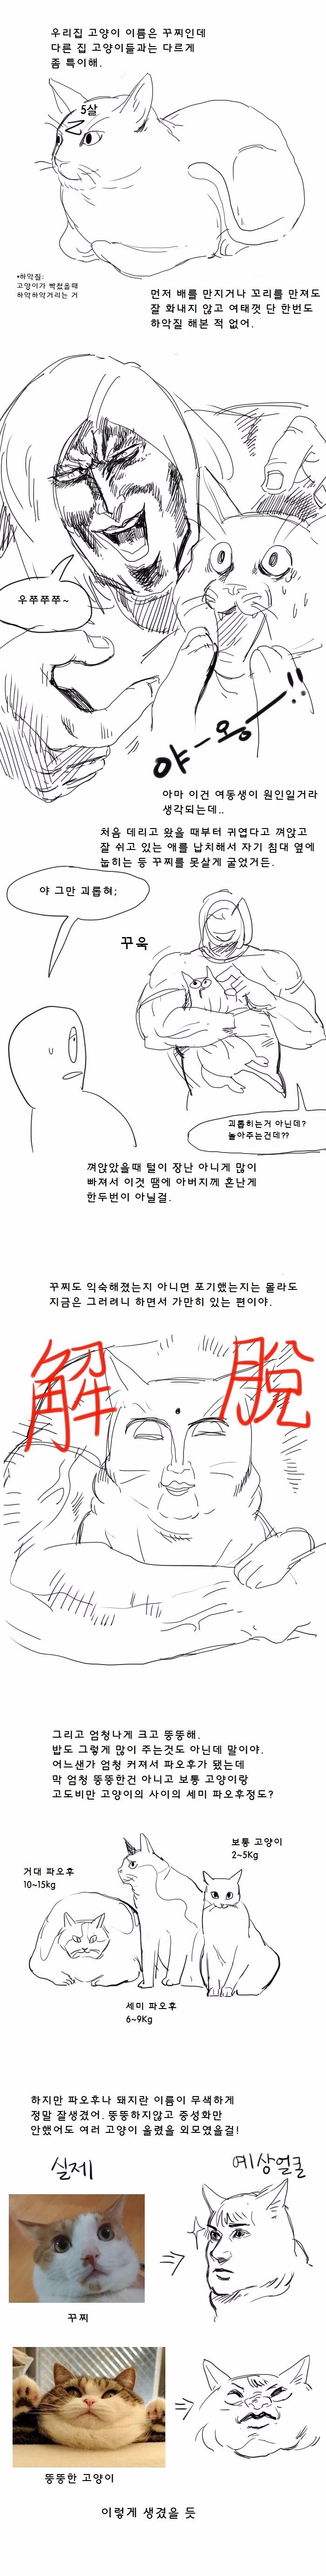 우리집 고양이 이름은 꾸찌인데
다른 집 고양이들과는 다르게
좀 특이해.
5살
*하악질:
고양이가 빡쳤을때
하악하악거리는 거
먼저 배를 만지거나 꼬리를 만져도
잘 화내지 않고 여태껏 단 한번도
하악질 해본 적 없어.
우쭈쭈쭈~
야-옹!!
아마 이건 여동생이 원인일거라
생각되는데..
처음 데리고 왔을 때부터 귀엽다고 껴앉고
잘 쉬고 있는 애를 납치해서 자기 침대 옆에
눕히는 등 꾸찌를 못살게 굴었거든.
야 그만 괴롭혀;
꾸욱
괴롭히는거 아닌데?
놀아주는건데??
껴앉았을때 털이 장난 아니게 많이
빠져서 이것 땜에 아버지께 혼난게
한두번이 아닐걸.
꾸찌도 익숙해졌는지 아니면 포기했는지는 몰라도
지금은 그러려니 하면서 가만히 있는 편이야.
解 脫
그리고 엄청나게 크고 뚱뚱해.
밥도 그렇게 많이 주는것도 아닌데 말이야.
어느샌가 엄청 커져서 파오후가 됐는데
막 엄청 뚱뚱한건 아니고 보통 고양이랑
고도비만 고양이의 사이의 세미 파오후정도?
보통 고양이
2~5Kg
거대 파오후
10~15kg
세미 파오후
6~9Kg
하지만 파오후나 돼지란 이름이 무색하게
정말 잘생겼어. 뚱뚱하지않고 중성화만
안했어도 여러 고양이 울렸을 외모였을걸!
실제
예상얼굴
꾸찌
뚱뚱한 고양이
이렇게 생겼을 듯